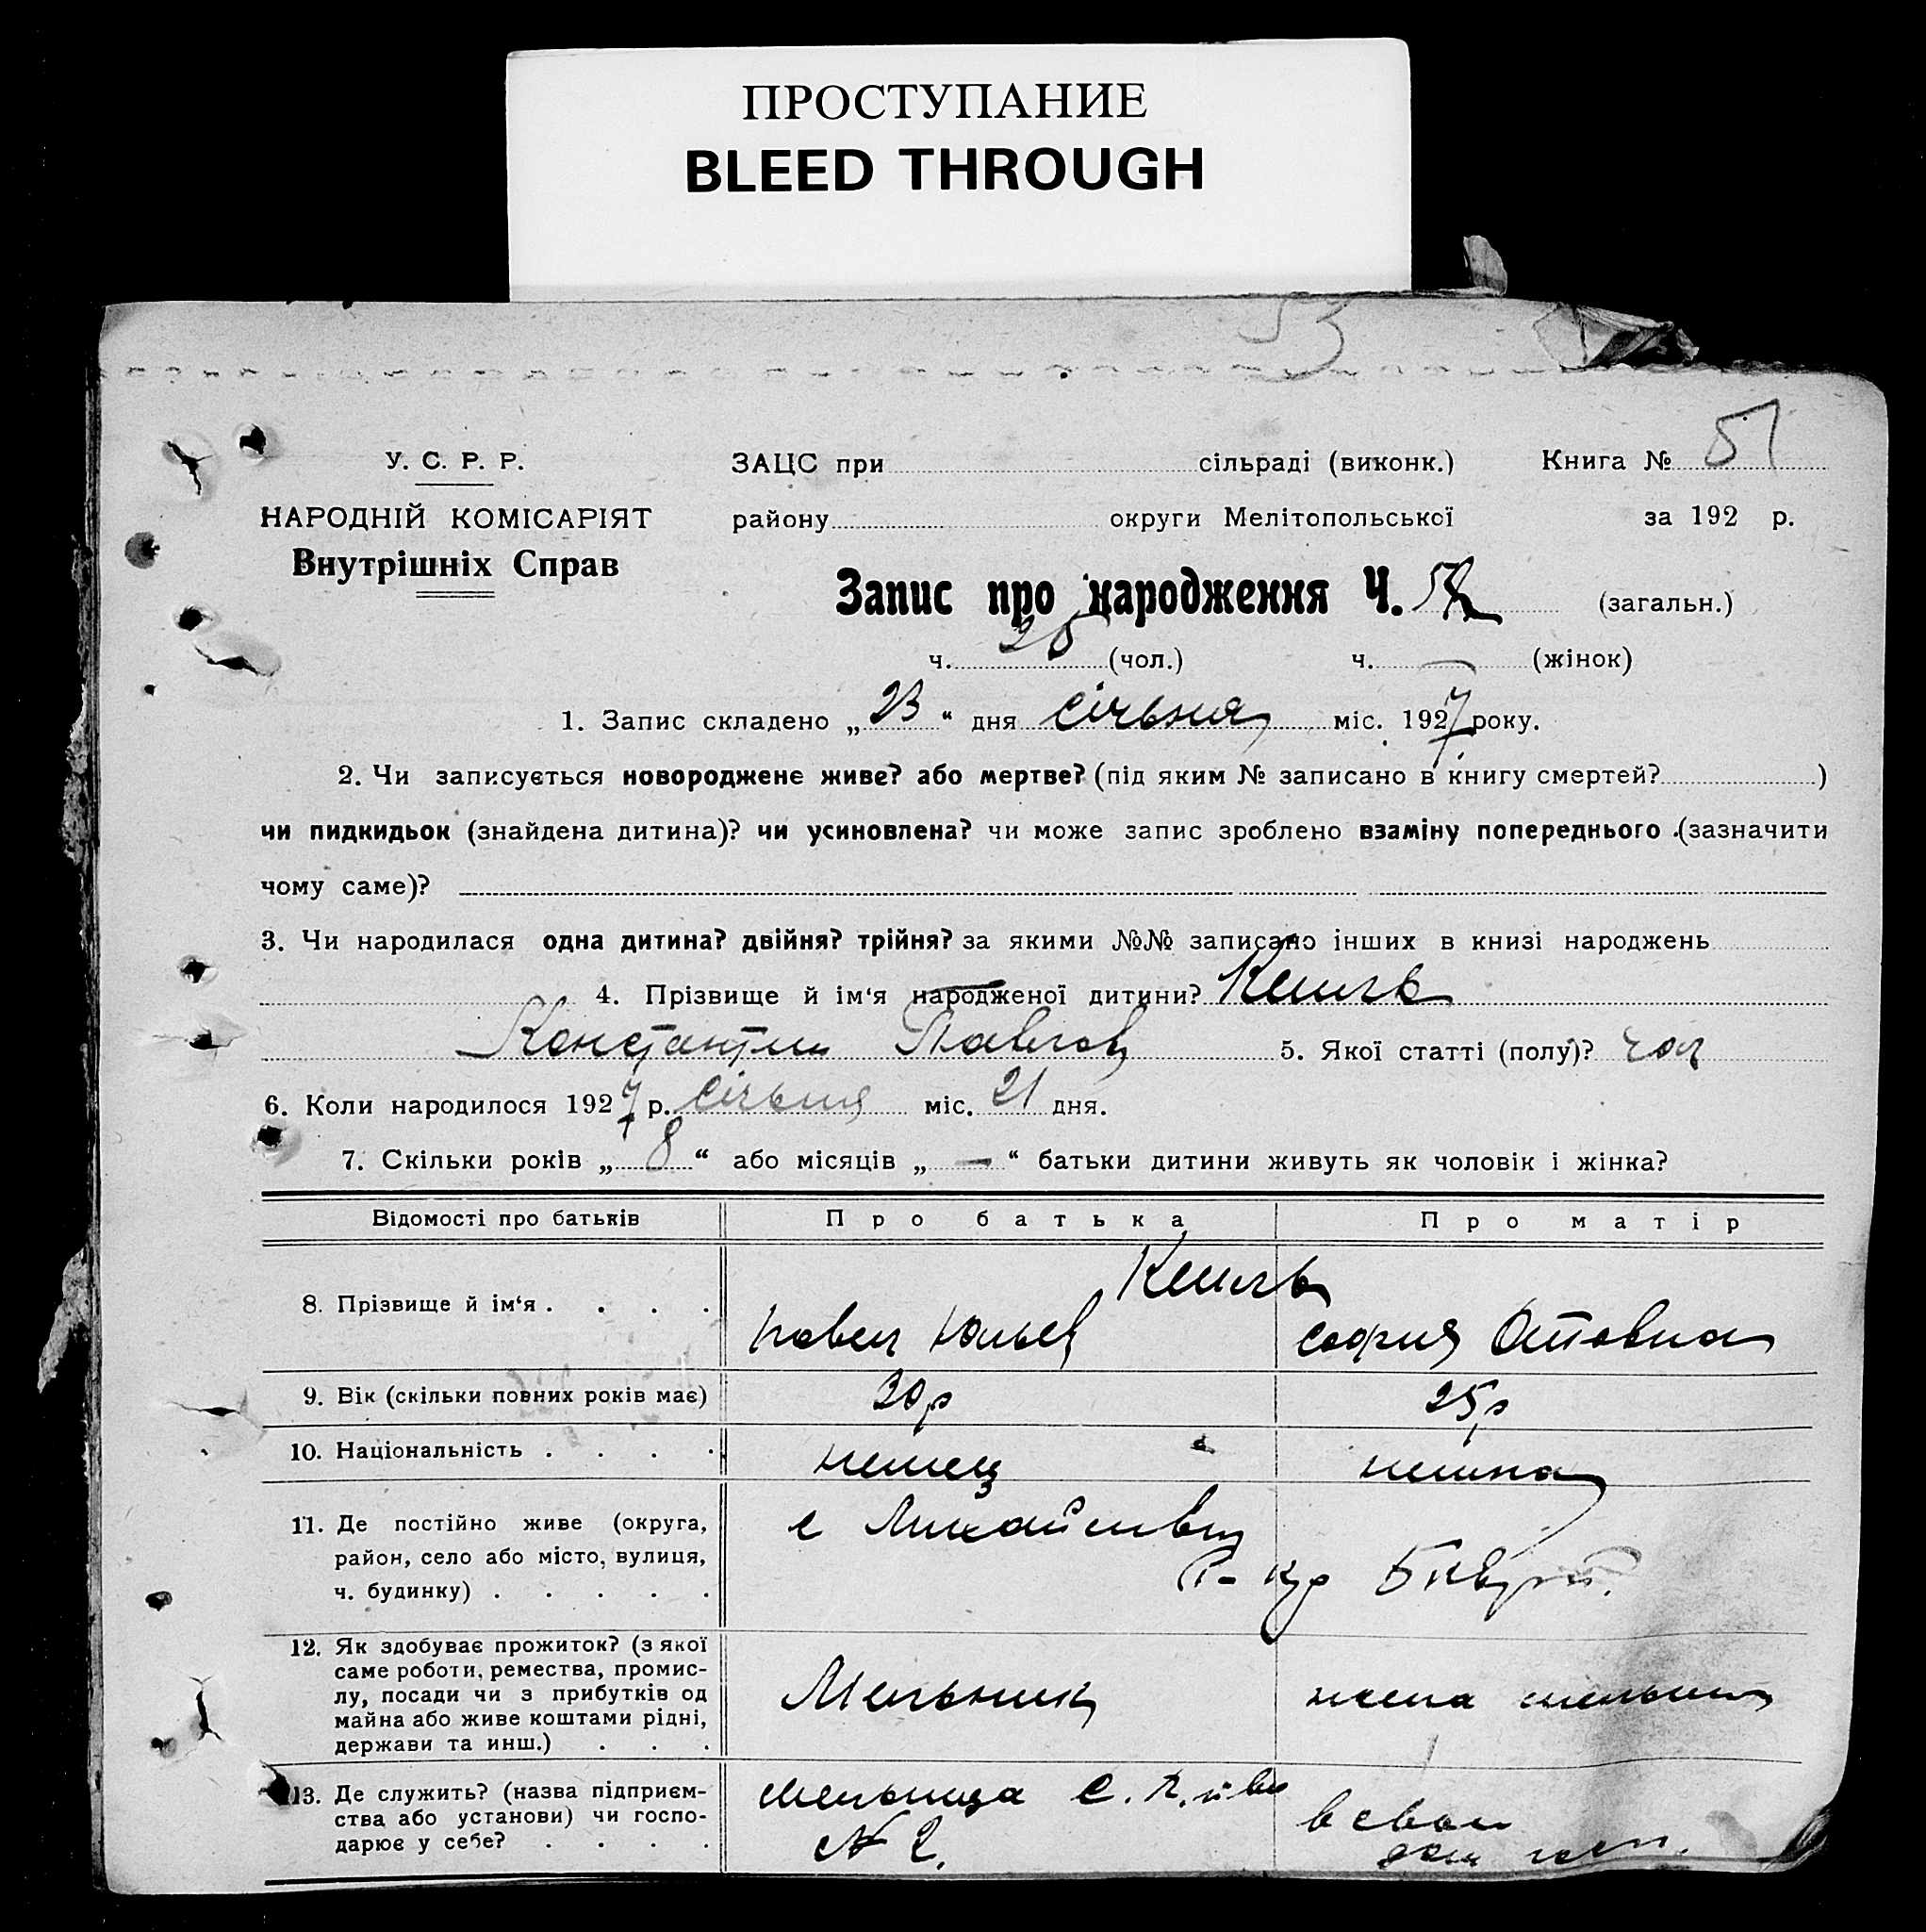 ПРОСТУПАНИЕ
BLEED THROUGH
53
У. С. Р. Р.
ЗАЦС при сільраді (виконк.) Книга № 51
НАРОДНІЙ КОМІСАРІЯТ
району округи Мелітопольської за 192 р.
Внутрішніх Справ
Запис про народження Ч. (загальн.)
ч. (чол.) ч. — (жінок)
1. Запис складено „23“ дня січьня міс. 1927 року.
2. Чи записується новороджене живе? або мертве? (під яким № записано в книгу смертей? )
чи пидкидьок (знайдена дитина)? чи усиновлена? чи може запис зроблено взаміну попереднього (зазначити
чому саме)?
3. Чи народилася одна дитина? двійня? трійня? за якими №№ записано інших в книзі народжень
4. Прізвище й ім‘я народженої дитини? Кешль
Константин Павлов 5. Якої статті (полу)? чол
6. Коли народилося 1927 р. січьня міс. 21 дня.
7. Скільки років „8“ або місяців „—“ батьки дитини живуть як чоловік і жінка?
Відомості про батьків Про батька Про матір
Кешль
8. Прізвище й ім‘я . . . .
Павел Юльев София Отовна
9. Вік (скільки повних років має) 30 р 25 р
10. Національність . . . . немец немка
11. Де постійно живе (округа,
район, село або місто, вулиця,
ч. будинку) . . . . .
12. Як здобуває прожиток? (з якої
саме роботи, ремества, промис-
лу, посади чи з прибутків од
майна або живе коштами рідні,
держави та инш.) . . .
Мельник жена мельника
13. Де служить? (назва підприєм-
ства або установи) чи госпо-
дарює у себе? . . . .
мельница
№ 2. в своем
дом